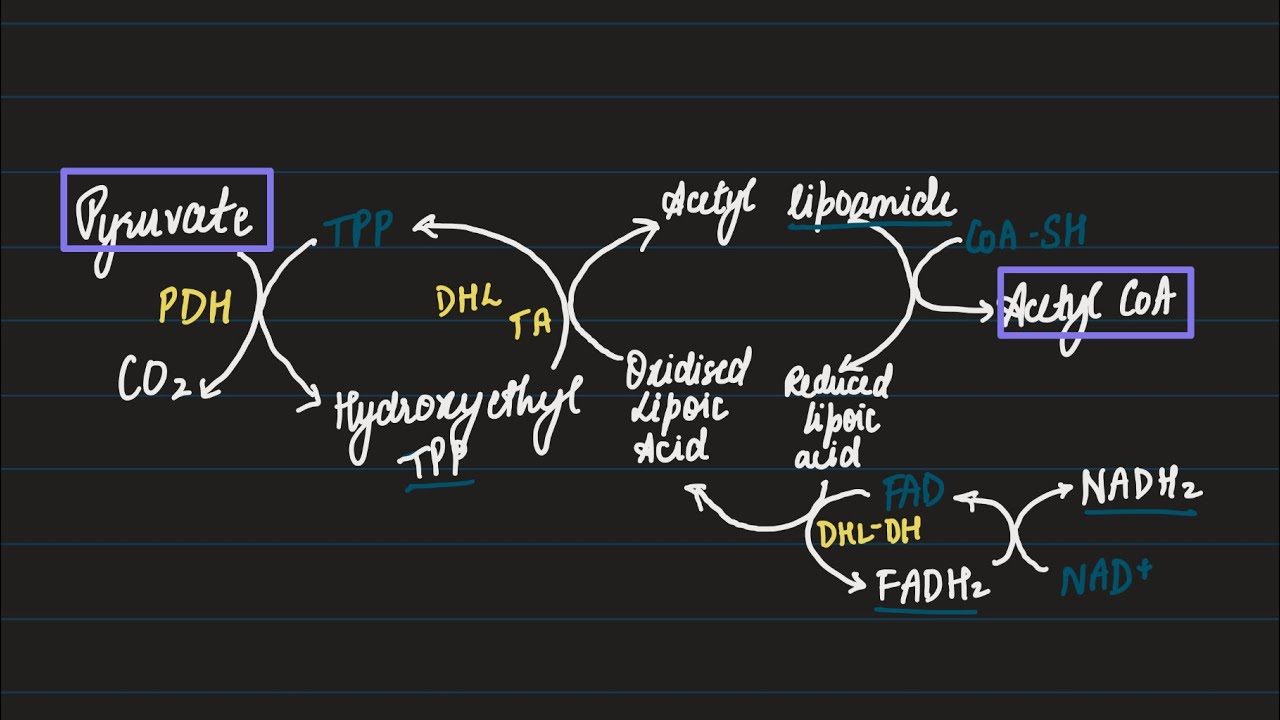 Pyruvate
TPP
Acetyl lipoamide
CoA-SH
PDH
DHL
TA
Acetyl CoA
CO2
Hydroxyethyl
TPP
Oxidised
Lipoic
Acid
Reduced
lipoic
acid
FAD
NADH2
DHL-DH
FADH2
NAD+